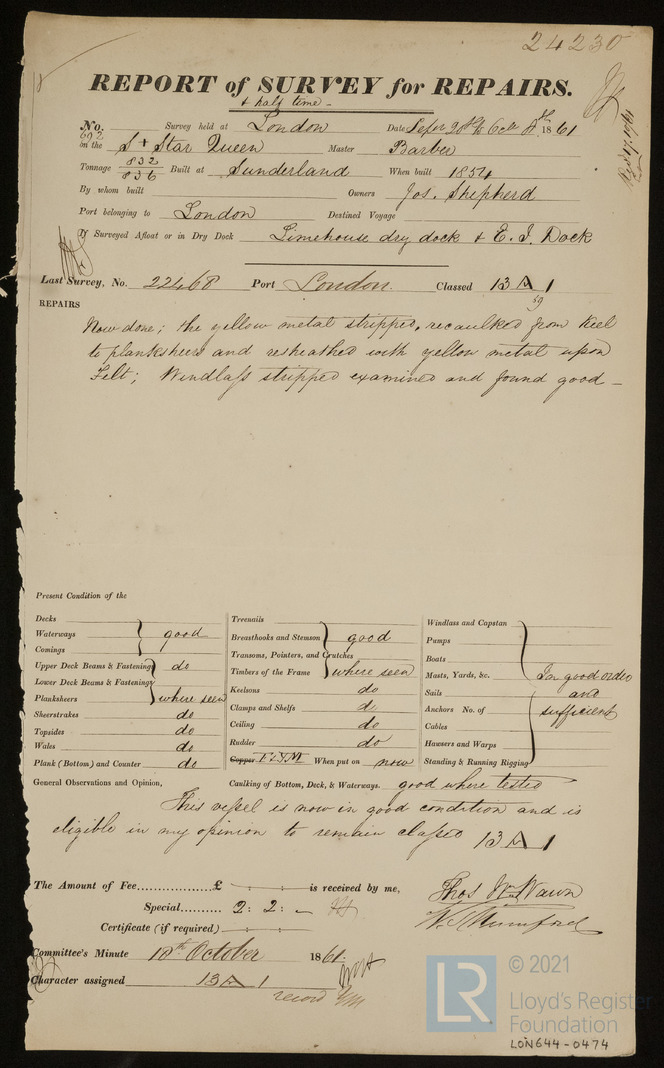 24230
REPORT of SURVEY for REPAIRS.
& half time -
No. 692 Survey held at London Date Sepr 20th to Octr 1861
on the S+ Star Queen Master Barber
Tonnage 832 836 Built at Sunderland When built 1854
By whom built Owners Jos. Shepherd
Port belonging to London Destined Voyage
If Surveyed Afloat or in Dry Dock Limehouse dry dock & E. I. Dock
Last Survey, No. 22468 Port London. Classed 13 A 1
59
REPAIRS
Now done; the yellow metal stripped, recaulked from Keel
to planksheers and resheathed with yellow metal upon
Felt; Windlass stripped examined and found good -
Present Condition of the
Decks
Waterways good
Comings
Upper Deck Beams & Fastenings do
Lower Deck Beams & Fastenings
Planksheers where seen
Sheerstrakes do
Topsides do
Wales do
Plank (Bottom) and Counter do
Treenails
Breasthooks and Stemson good
Transoms, Pointers, and Crutches
Timbers of the Frame where seen
Keelsons do
Clamps and Shelfs d
Ceiling do
Rudder do
Copper F & YM When put on now
Windlass and Capstan
Pumps
Boats
Masts, Yards, &c. In good order
Sails and
Anchors No. of sufficient
Cables
Hawsers and Warps
Standing & Running Rigging
General Observations and Opinion, Caulking of Bottom, Deck, & Waterways. good where tested
This vessel is now in good condition and is
eligible in my opinion to remain classed 13 A 1
The Amount of Fee £ is received by me,
Special 2 : 2 : -
Certificate (if required)
Thos Wm Wawn
W. Mumford
Committee's Minute 18th October 1861.
Character assigned 13 A 1
record YM
© 2021
LR
Lloyd's Register
Foundation
LON644-0474